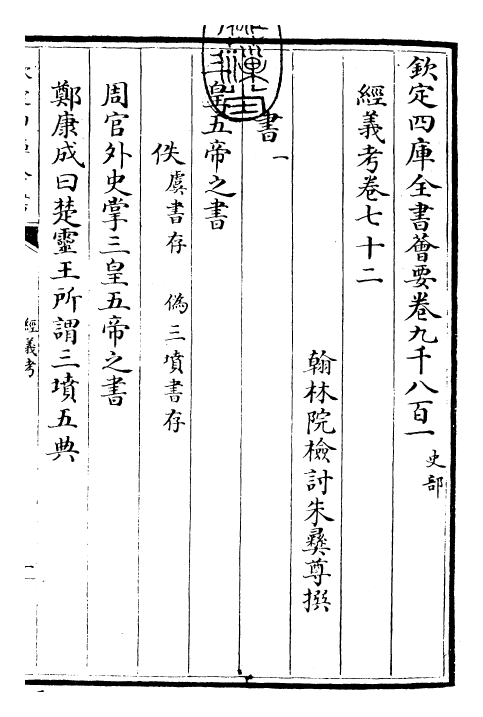 欽定四庫全書薈要卷九千八百一史部
經義考卷七十二
翰林院檢討朱彝尊撰
書一
三皇五帝之書
佚虞書存 偽三墳書存
周官外史掌三皇五帝之書
鄭康成曰楚靈王所謂三墳五典
經義考